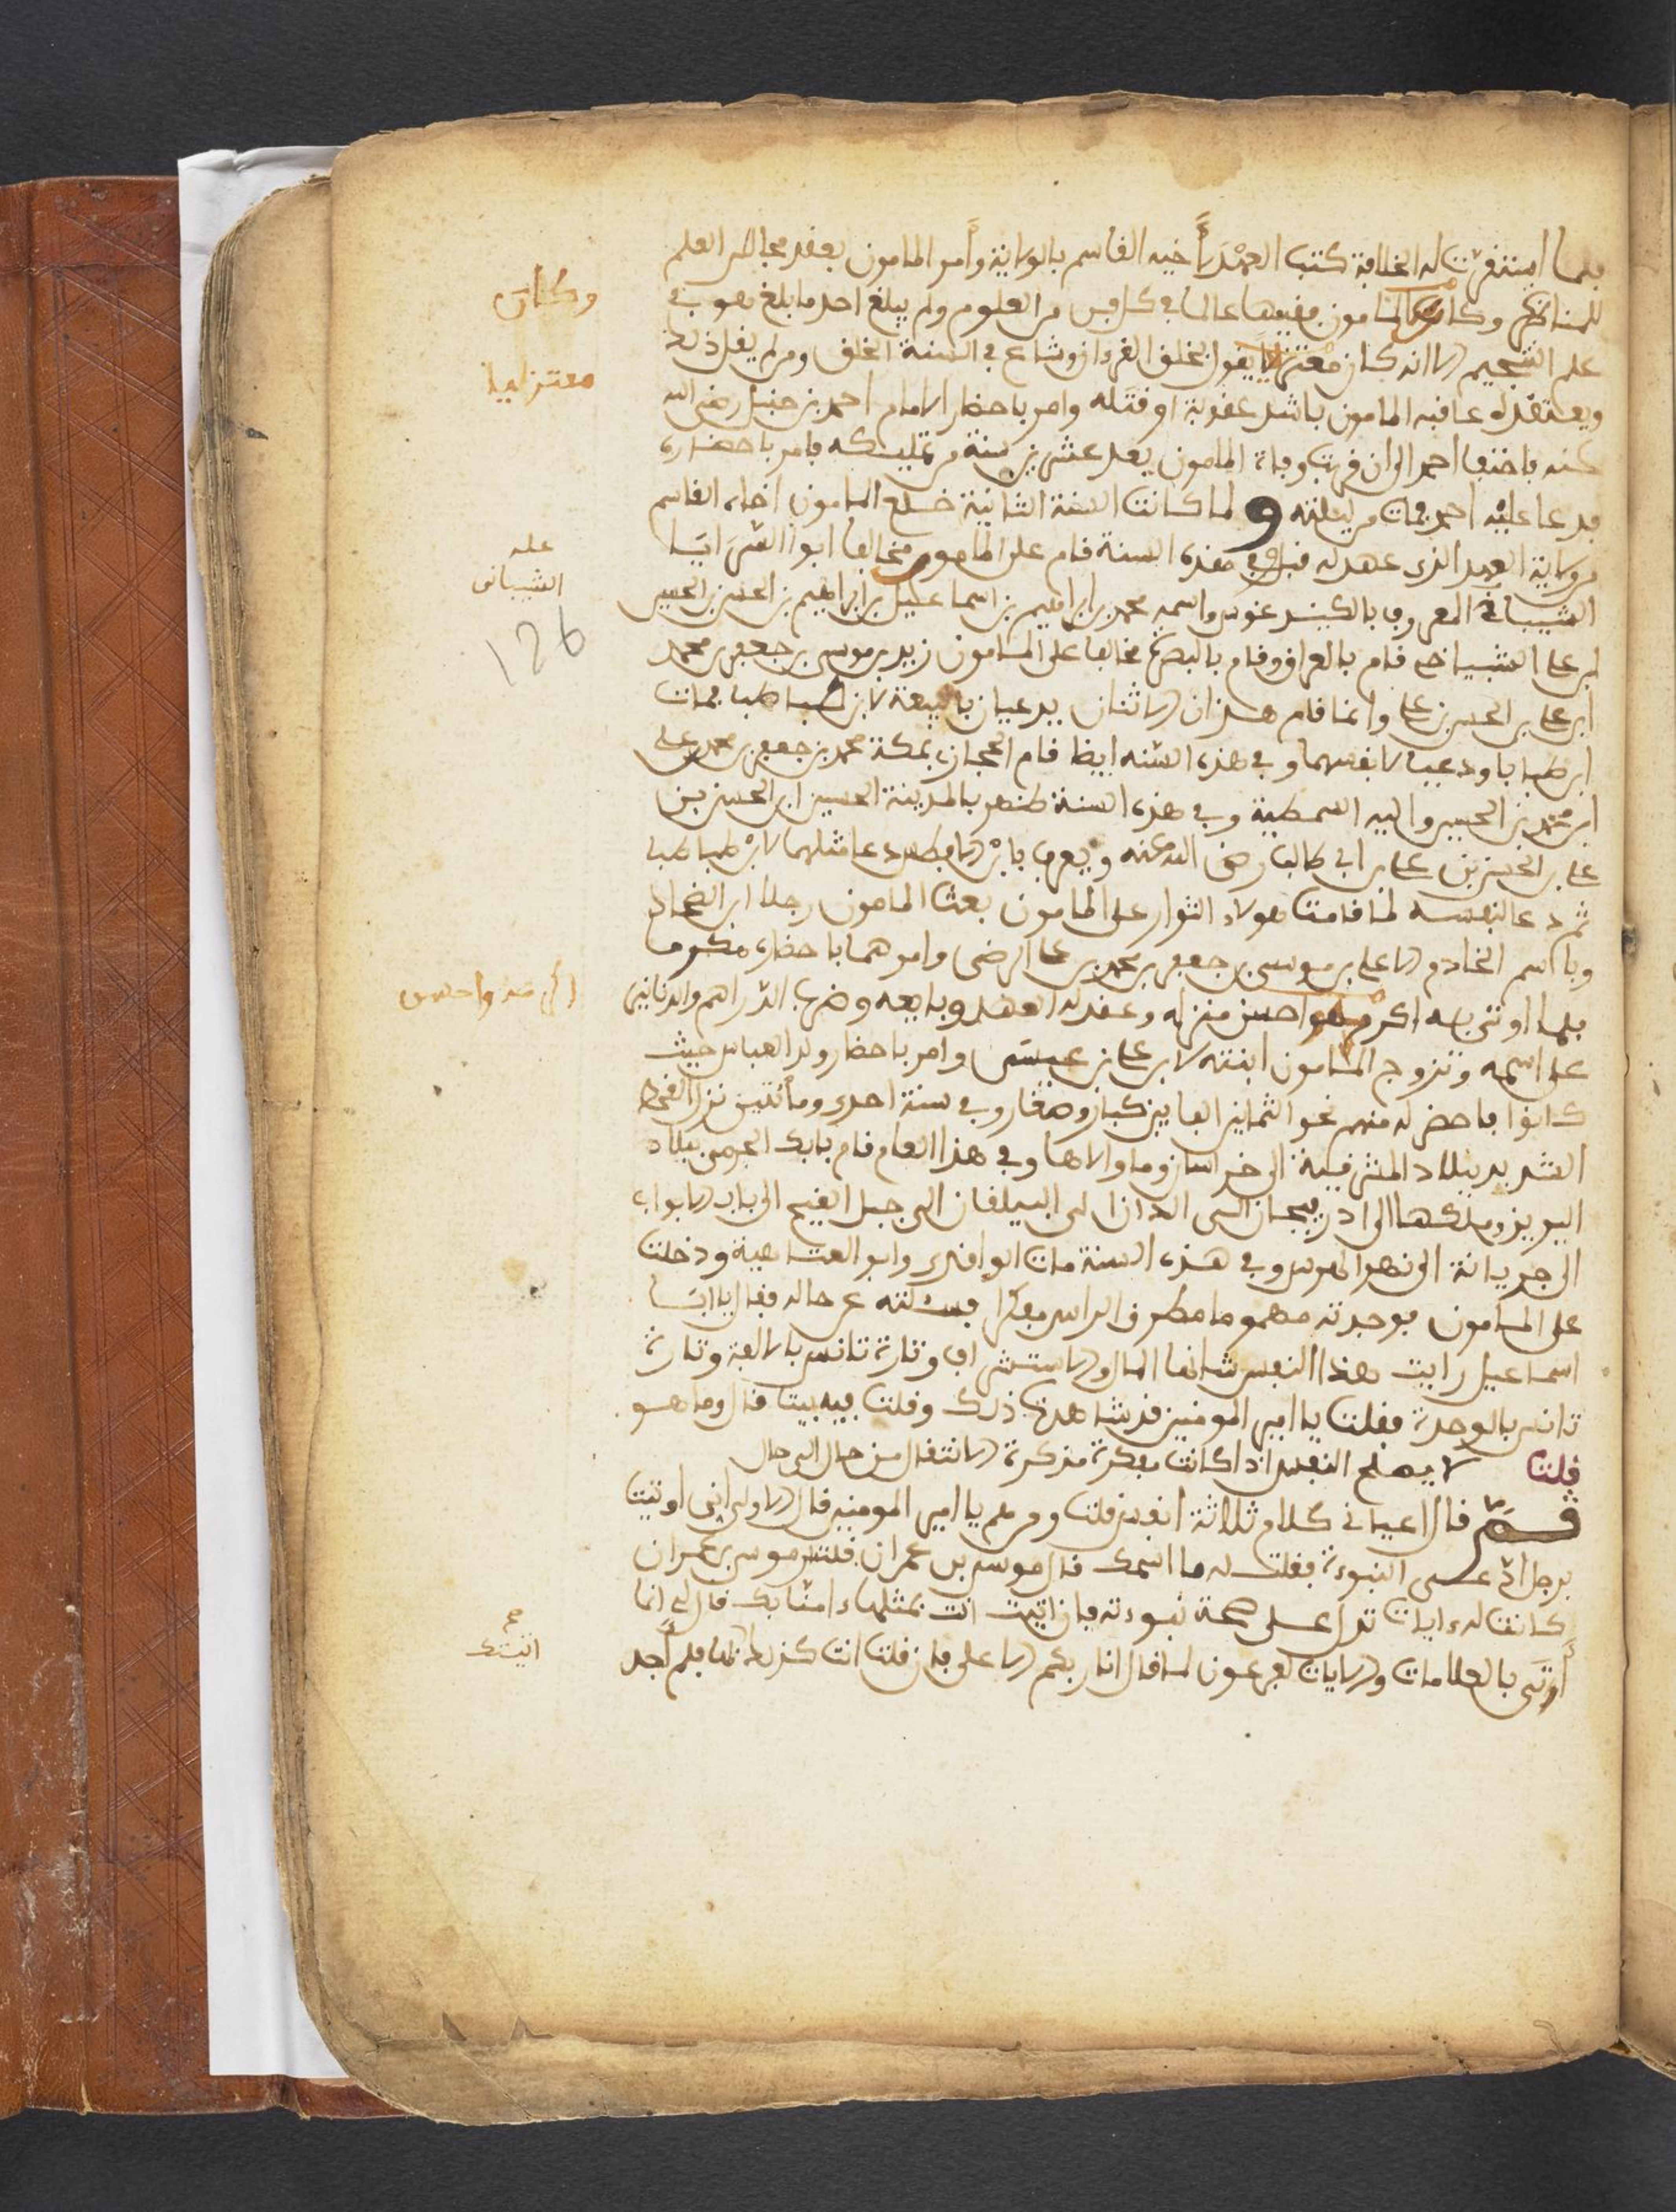 فلما استقرت له الخلافة كتب العهد لأخيه القاسم بالولاية وأمر المامون بعقد مجالس العلم
للمناظرة وكان المامون فقيها عالما في كل فن من العلوم ولم يبلغ احد ما بلغ هو في
علم التنجيم الا انه كان معتزليا يقول بخلق القرءان وشاع في السنة الخلق ومن لم يقل ذلك
ويعتقده عاقبه المامون باشد عقوبة او قتله وامر باحضار الامام احمد بن حنبل رضي الله
عنه فاختفا احمد الى ان قربت وفاة المامون بعد عشرين سنة من تمليكه فامر باحضاره
فدعا عليه احمد فمات من ليلته ولما كانت السنة الثانية خلع المامون اخاه القاسم
من ولاية العهد الذي عهد له قبل وفي هذه السنة قام على المامون مخالفا ابو السرايا
الشيباني المعروف واسمه محمد بن ابراهيم بن اسماعيل بن ابراهيم بن الحسن بن الحسين
ابن علي الشيباني قام بالعراق وقام بالبصرة مخالفا على المامون زيد بن موسى بن جعفر بن محمد
ابن علي بن الحسين بن علي وانما قام هذان الاثنان يدعيان بالبيعة لابن طباطبا فمات
ابن طباطبا ودعيا لانفسهما وفي هذه السنه ايضا قام الحجاز بمكة محمد بن جعفر بن محمد بن علي
ابن محمد بن الحسين واليه السمطية وفي هذه السنة ظهر بالمدينة الحسين ابن الحسن بن
علي بن الحسين بن علي بن ابي طالب رضي الله عنه ويعرف بابن الافطس دعا مثلهما لابن طباطبا
ثم دعا لنفسه لما قامت هولاء الثوار على المامون بعث المامون رجلا ابن الضحاك
وباسم الخادم الا علي بن موسى بن جعفر بن محمد بن علي الرضى وامرهما باحضاره مكرما
فلما اوتي به اكرمه واحسن منزله وعقد له العهد وبايعه وضرب الدراهم والدنانير
على اسمه وتزوج المامون ابنته لابن علي بن عيسى وامر باحضار ولد العباس حيث
كانوا فاحضر له منهم نحو الثمانين الفا بين كبار وصغار وفي سنة احدى ومائتين نزل القحط
الشديد ببلاد المشرقية الى خراسان وما والاها وفي هذا العام قام بابك الجرمي ببلاد
وملكها الى اذربيجان الى الران الى البيلقان الى جبل الفتح الى باب الابواب
الى نهر الروس وفي هذه السنة مات الواقدي وابو العتاهية ودخلت
على المامون فوجدته مهموما مطرق الراس مفكرا فسئلته عن حاله فقال يا ابا
اسماعيل رايت هذا النفس شانها الملال والاستشراف وتارة تانس بالالفة وتارة
تانس بالوحدة فقلت يا امير المومنين قد شاهدت ذلك وقلت فيه بيتا قال وما هو
قلت لا يصلح النفس اذا كانت مفكرة مذكرة الا انتقال من حال الى حال
ثم قال اعياني كلام ثلاثة انفس قلت ومن هم يا امير المومنين قال الاول اني اوتيت
برجل ادعى النبوءة فقلت له ما اسمك قال موسى بن عمران قلت موسى بن عمران
كانت له ءايات تدل على صحة نبوءته فان اتيت انت بمثلها ءامنا بك قال لي انما
أوتى بالعلامات والايات لفرعون لما قال انا ربكم الاعلى فان قلت انت كذلك فلم أجد
وكان
معتزليا
عله
الشيباني
126
اكرمه واحسن
صح
اتيتك